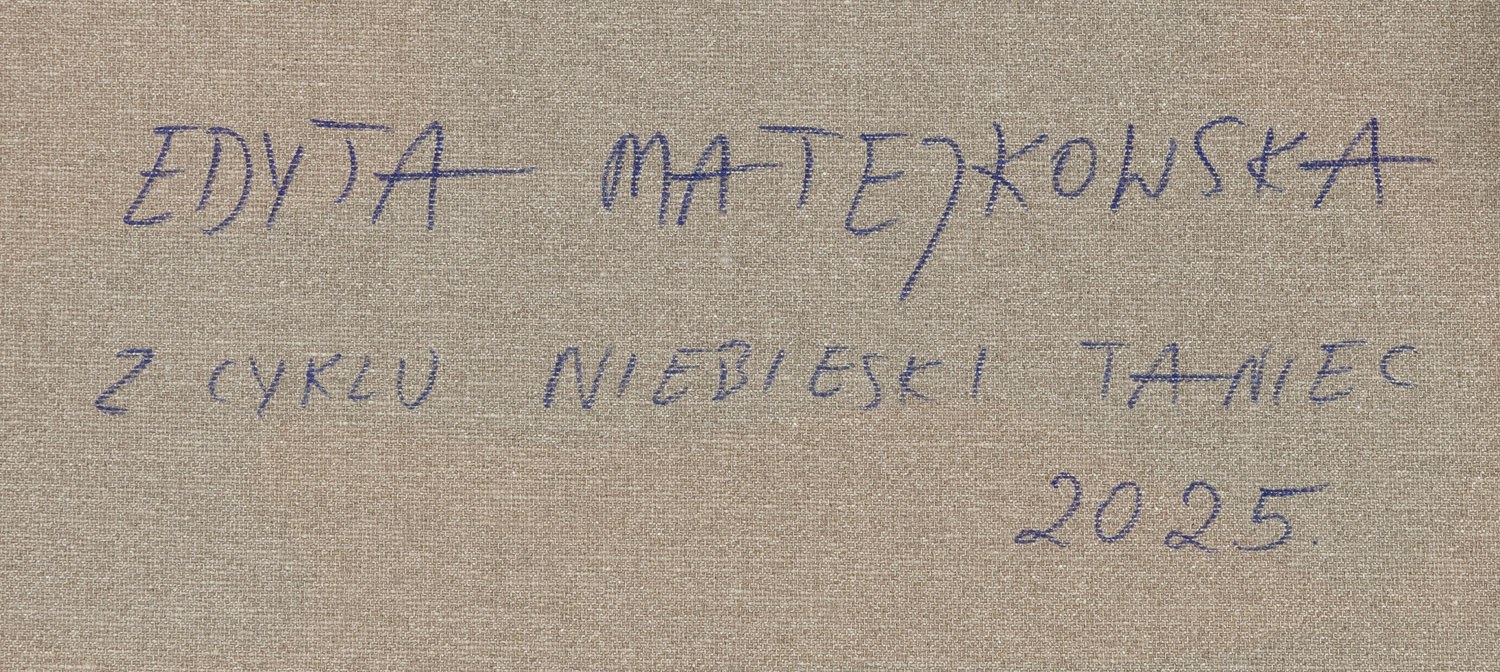 EDYTA MATEJKOWSKA
Z CYKLU NIEBIESKI TANIEC
2025.